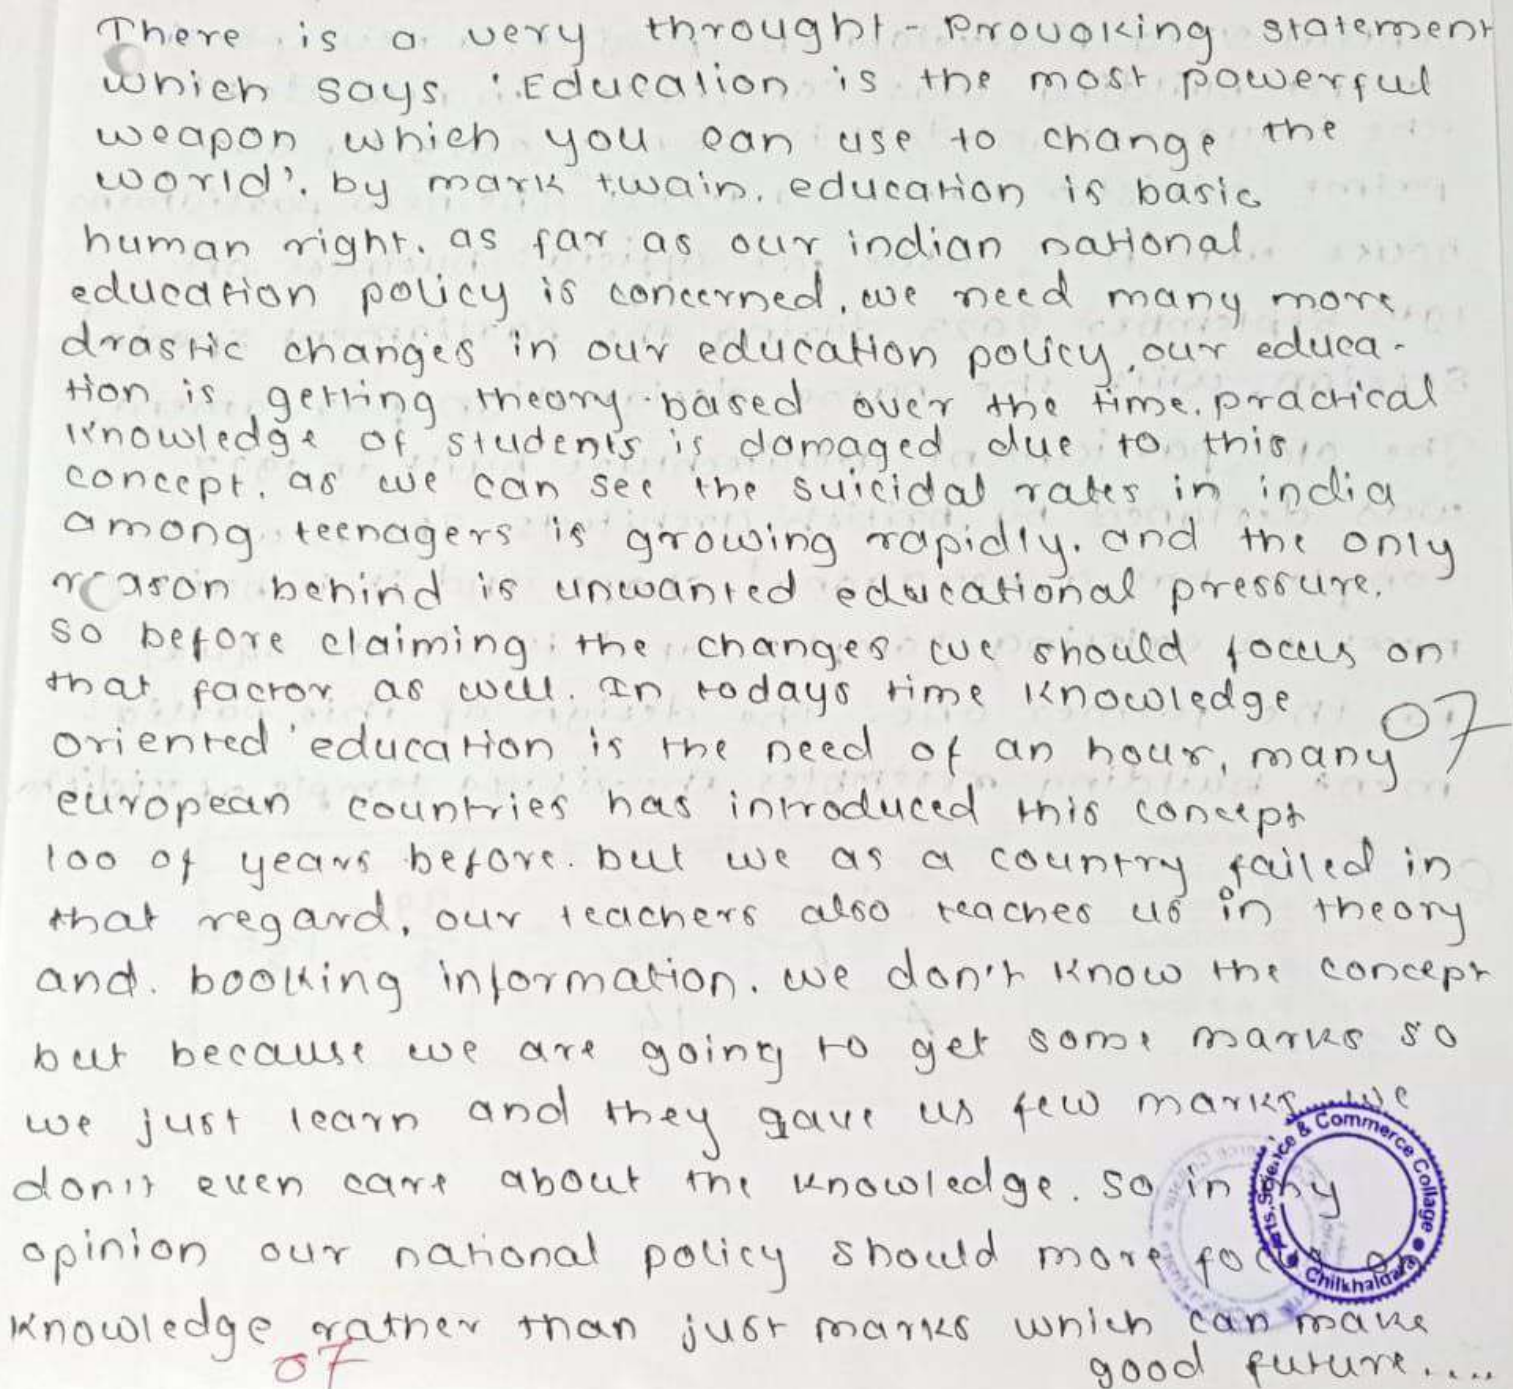 There is a very throught-Provoking statement
which says : Education is the most powerful
weapon which you can use to change the
world'. by mark twain. education is basic
human right. as far as our indian national
education policy is concerned, we need many more
drastic changes in our education policy, our educa-
tion is getting theory based over the time. practical
knowledge of students is damaged due to this
concept. as we can see the suicidal rates in india
among teenagers is growing rapidly. and the only
reason behind is unwanted educational pressure.
so before claiming the changes we should focus on
that factor as well. In todays time knowledge
oriented education is the need of an hour, many
07
european countries has introduced this concept
100 of years before. but we as a country failed in
that regard, our teachers also teaches us in theory
and. booking information. we don't know the concept
but because we are going to get some marks so
we just learn and they gave us few marks we
don't even care about the knowledge. so in my
opinion our national policy should more focus on
knowledge rather than just marks which can make
good future....
07
Arts, Science & Commerce Collage
Chilkhaldara